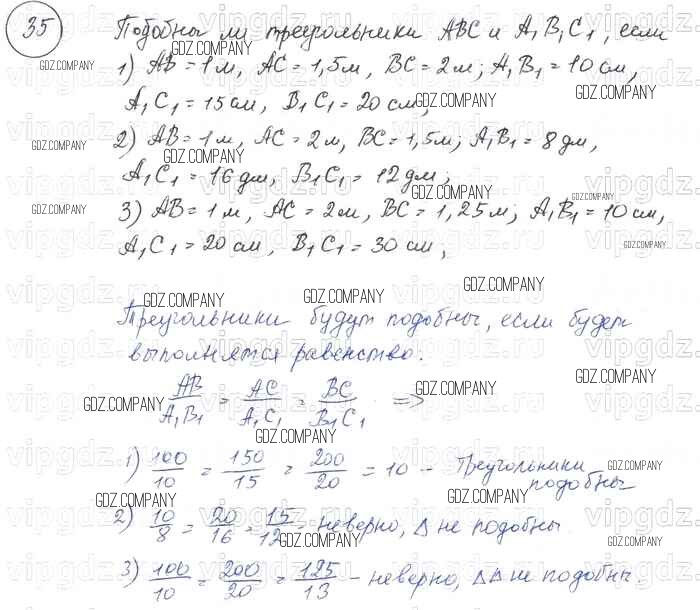 35
Подобны ли треугольники ABC и A₁B₁C₁, если
1) AB = 1 м, AC = 1,5 м, BC = 2 м; A₁B₁ = 10 см,
A₁C₁ = 15 см, B₁C₁ = 20 см,
2) AB = 1 м, AC = 2 м, BC = 1,5 м; A₁B₁ = 8 дм,
A₁C₁ = 16 дм, B₁C₁ = 12 дм;
3) AB = 1 м, AC = 2 м, BC = 1,25 м; A₁B₁ = 10 см,
A₁C₁ = 20 см, B₁C₁ = 30 см;
Треугольники будут подобны, если будет
выполнятся равенство.
AB/A₁B₁ = AC/A₁C₁ = BC/B₁C₁ =>
1) 100/10 = 150/15 = 200/20 = 10 - Треугольники
подобны
2) 10/8 = 20/16 = 15/12 - неверно, Δ не подобны.
3) 100/10 = 200/20 = 125/13 - неверно, ΔΔ не подобны.
GDZ.COMPANY
vipgdz.ru